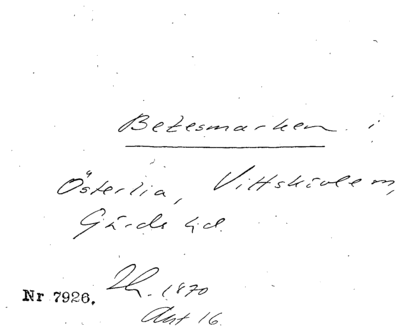 Betesmarken i
Österlia, Vittskövlem,
Gärds hd.
Nr 7926.
Th. 1870
Akt 16.